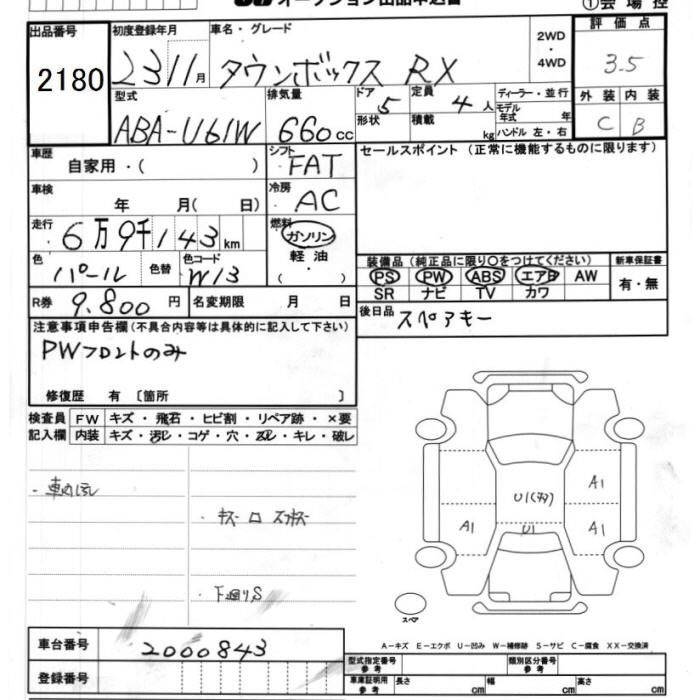 オークション出品申込書
①会場控
出品番号 2180
初度登録年月 23 11月
車名・グレード タウンボックス RX
2WD・4WD
評価点 3.5
型式 ABA-U61W
排気量 660cc
ドア 形状 5
定員 4人
積載 kg
ディーラー・並行
モデル年式 年
ハンドル 左・右
外装 C
内装 B
車歴 自家用・( )
シフト FAT
セールスポイント (正常に機能するものに限ります)
車検 年 月( 日)
冷房 AC
走行 6万9千143km
燃料 ガソリン・軽油・( )
色 パール 色替
色コード W13
装備品 (純正品に限り○をつけてください)
PS PW ABS エアB AW
SR ナビ TV カワ
新車保証書 有・無
R券 9.800円
名変期限 月 日
後日品 スペアキー
注意事項申告欄(不具合内容等は具体的に記入して下さい)
PWフロントのみ
修復歴 有 〔箇所 〕
検査員記入欄
FW キズ・飛石・ヒビ割・リペア跡・×要
内装 キズ・汚レ・コゲ・穴・ヌレ・キレ・破レ
下廻りS
A1
U1
A1
U1
A1
スペア
A-キズ E-エクボ U-凹み W-補修跡 S-サビ C-腐食 XX-交換済
車台番号 2000843
登録番号
型式指定番号 参考
類別区分番号 参考
車庫証明用 参考
長さ cm 幅 cm 高さ cm